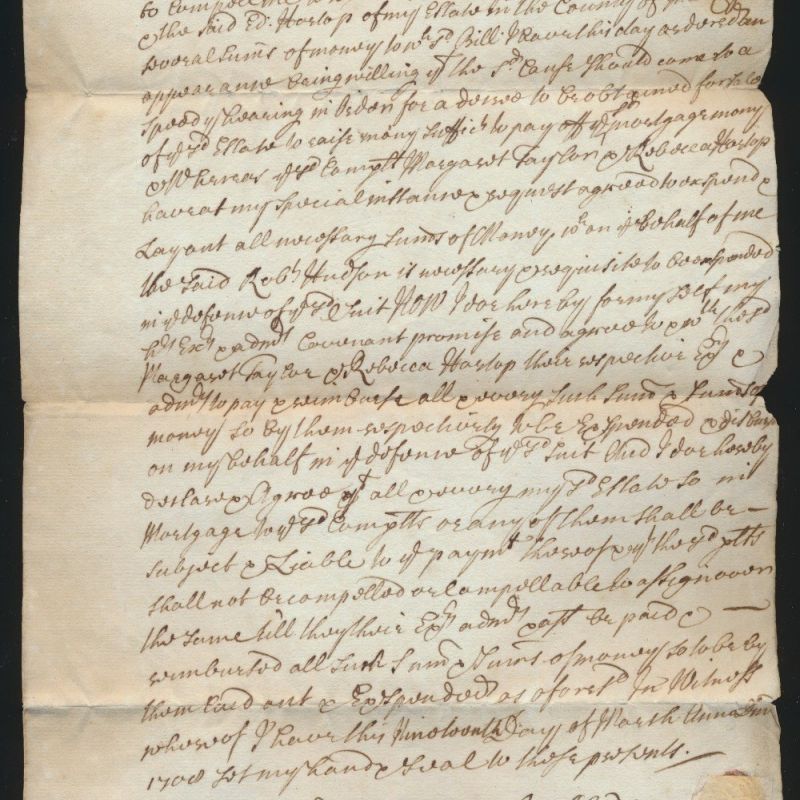 to compell me
& the said Ed: Harlop of my Estate in the County of
several sums of money to wch sd Bill I have this day ordered an
appearance being willing yt the sd Cause should come to a
speedy hearing in Order for a decree to be obtained for sale
of ye sd Estate to raise mony suffict to pay off ye sd mortgage mony
& Whereas ye sd Complts Margaret Taylor & Rebecca Harlop
have at my special instance & request agreed to expend &
Lay out all necessary sums of Money, wch on ye behalf of me
the said Robt Hudson is necessary & requisite to be expended
in ye defense of ye sd suit NOW I doe hereby for my self my
hrs Exrs & admrs Covenant promise and agree to & wth the sd
Margaret Taylor & Rebecca Harlop their respective Exrs &
admrs to pay & reimburse all & every such sum & sums of
money so by them respectively to be Expended & disburs
on my behalf in ye defense of ye sd suit And I doe hereby
declare & Agree yt all & every my sd Estate so in
Mortgage to ye sd Complts or any of them shall be
subject & Liable to ye paymt thereof & yt the sd plts
shall not be compelled or Compellable to assign over
the same till they their Exrs admrs & asts be paid &
reimbursed all such Sum & Sums of money so to be by
them Laid out & Expended as aforesd In Witness
whereof I have this Nineteenth Day of March Anno Dni
1708 set my hand & seal to these presents.